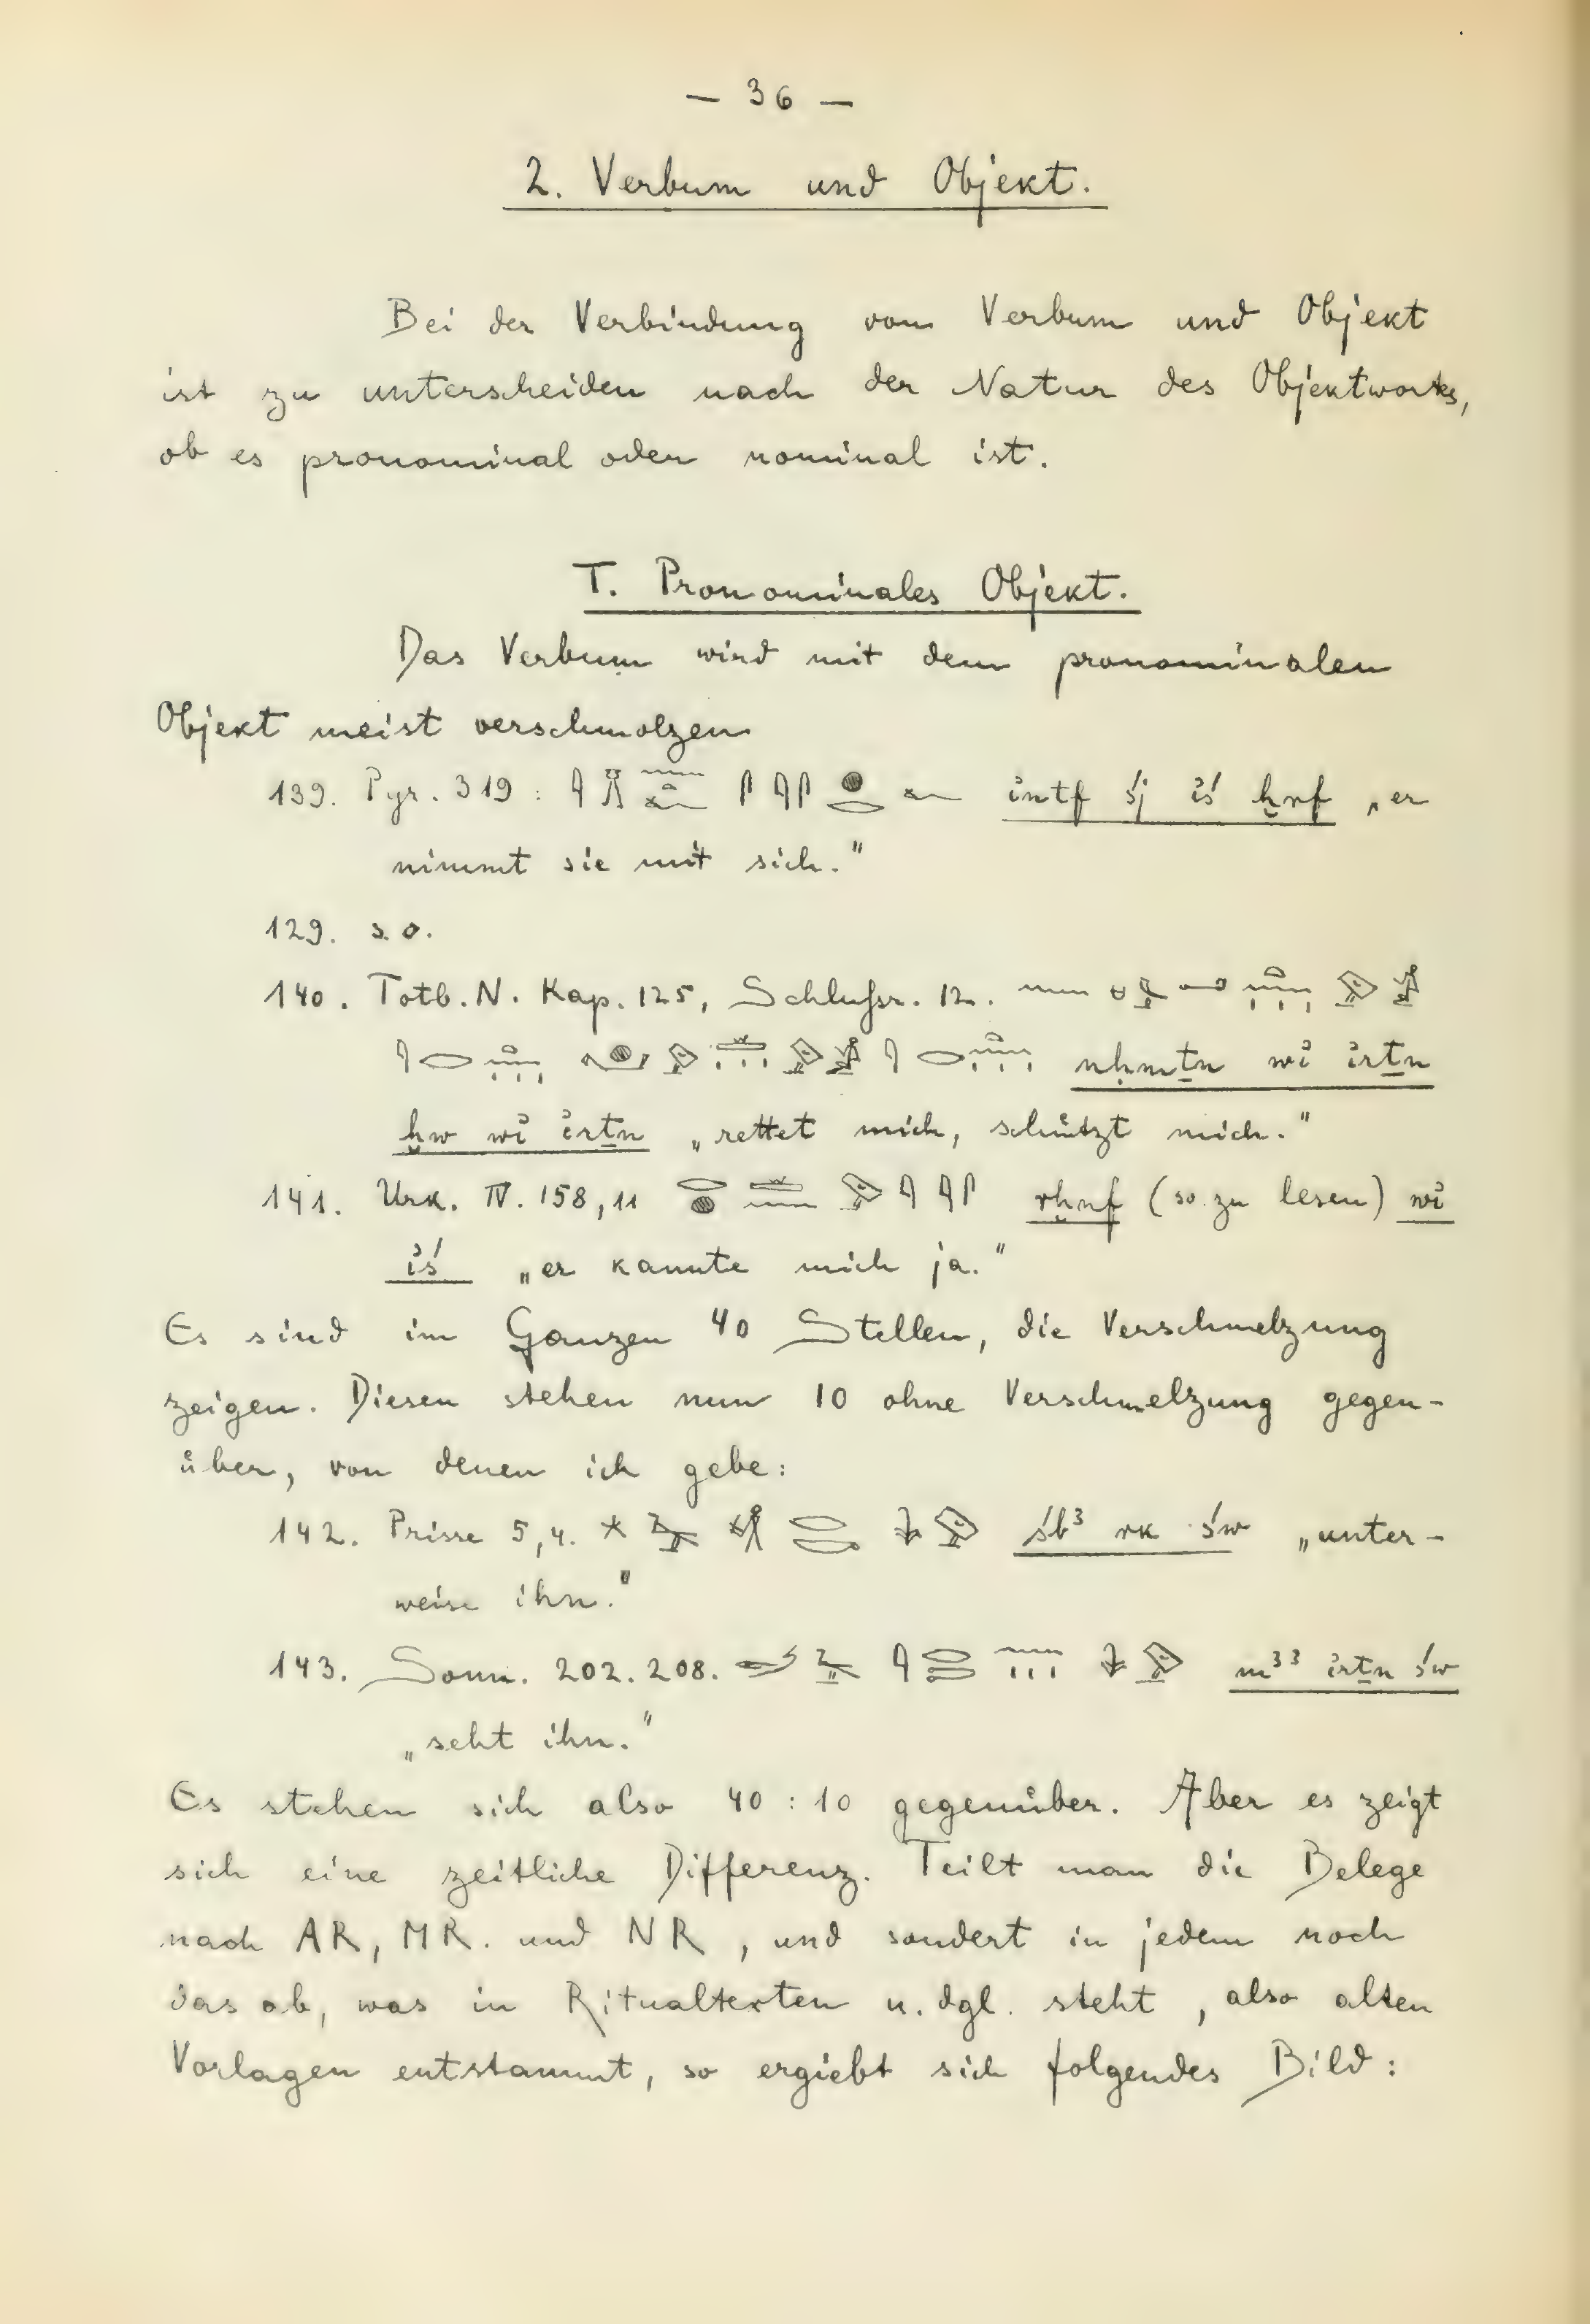 — 36 —
2. Verbum und Objekt.
Bei der Verbindung von Verbum und Objekt
ist zu unterscheiden nach der Natur des Objektworts,
ob es pronominal oder nominal ist.
I. Pronominales Objekt.
Das Verbum wird mit dem pronominalen
Objekt meist verschmolzen
139. Pyr. 319: intf śj iś ḫrf „er
nimmt sie mit sich."
129. s. o.
140. Totb. N. Kap. 125, Schlußr. 12.
nḥmṯn wi irṯn
ḫw wi irṯn „rettet mich, schützt mich."
141. Urk. IV. 158, 11 rḫnf (so zu lesen) wi
iś „er kannte mich ja."
Es sind im Ganzen 40 Stellen, die Verschmelzung
zeigen. Diesen stehen nun 10 ohne Verschmelzung gegen-
über, von denen ich gebe:
142. Prisse 5, 4. śb³ rk św „unter-
weise ihn."
143. Sonn. 202. 208. m³³ irṯn św
„seht ihn."
Es stehen sich also 40 : 10 gegenüber. Aber es zeigt
sich eine zeitliche Differenz. Teilt man die Belege
nach AR, MR. und NR, und sondert in jedem noch
das ab, was in Ritualtexten u. dgl. steht, also alten
Vorlagen entstammt, so ergiebt sich folgendes Bild: